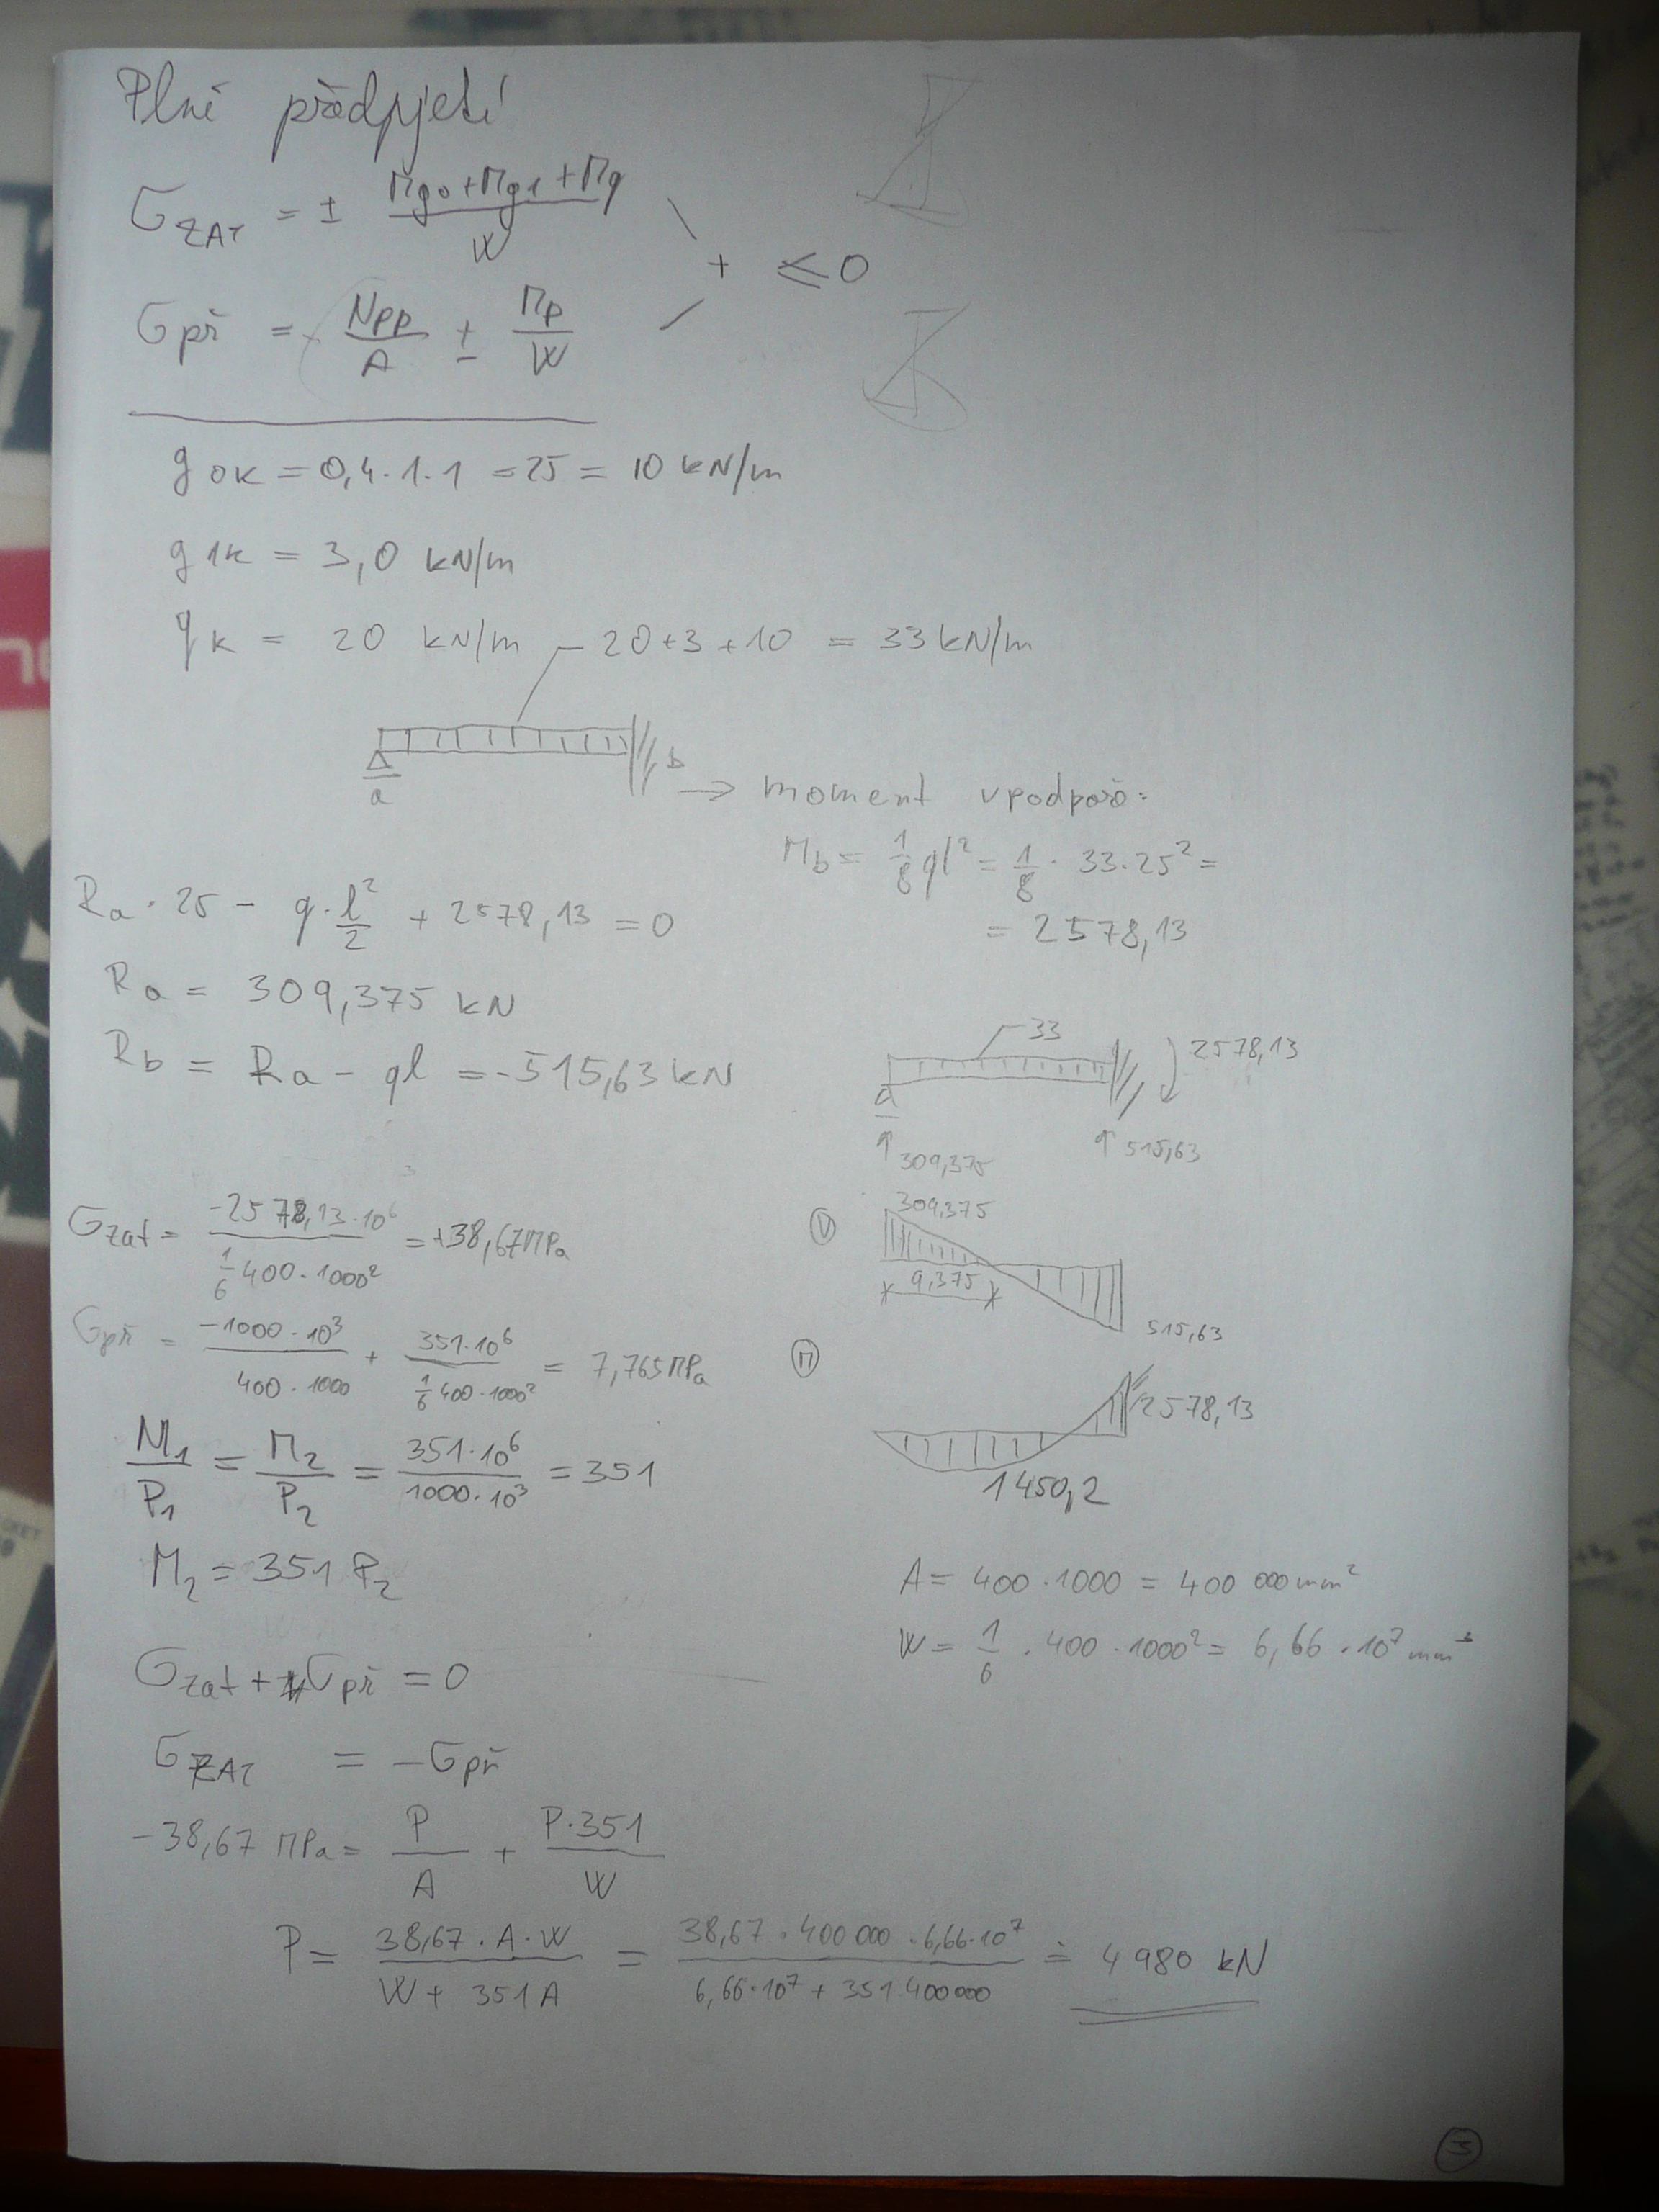 Plné předpjetí
σZAT = ± (Mg0 + Mg1 + Mq) / W
+ ≤ 0
σpř = - Npp / A ± Mp / W
g0k = 0,4 · 1 · 1 = 25 = 10 kN/m
g1k = 3,0 kN/m
qk = 20 kN/m
20+3+10 = 33 kN/m
a
b
→ moment v podpoře:
Mb = 1/8 ql² = 1/8 · 33 · 25² =
= 2578,13
Ra · 25 - q · l²/2 + 2578,13 = 0
Ra = 309,375 kN
Rb = Ra - ql = -515,63 kN
33
2578,13
a
↑ 309,375
↑ 515,63
σzat = -2578,13 · 10⁶ / (1/6 400 · 1000²) = +38,67 MPa
V
309,375
9,375
515,63
σpř = -1000 · 10³ / (400 · 1000) + 351 · 10⁶ / (1/6 400 · 1000²) = 7,765 MPa
M
2578,13
1450,2
M1/P1 = M2/P2 = 351 · 10⁶ / (1000 · 10³) = 351
M2 = 351 P2
A = 400 · 1000 = 400 000 mm²
W = 1/6 · 400 · 1000² = 6,66 · 10⁷ mm³
σzat + σpř = 0
σZAT = -σpř
-38,67 MPa = P/A + P·351/W
P = 38,67 · A · W / (W + 351A) = 38,67 · 400 000 · 6,66·10⁷ / (6,66·10⁷ + 351·400000) ≐ 4 980 kN
3